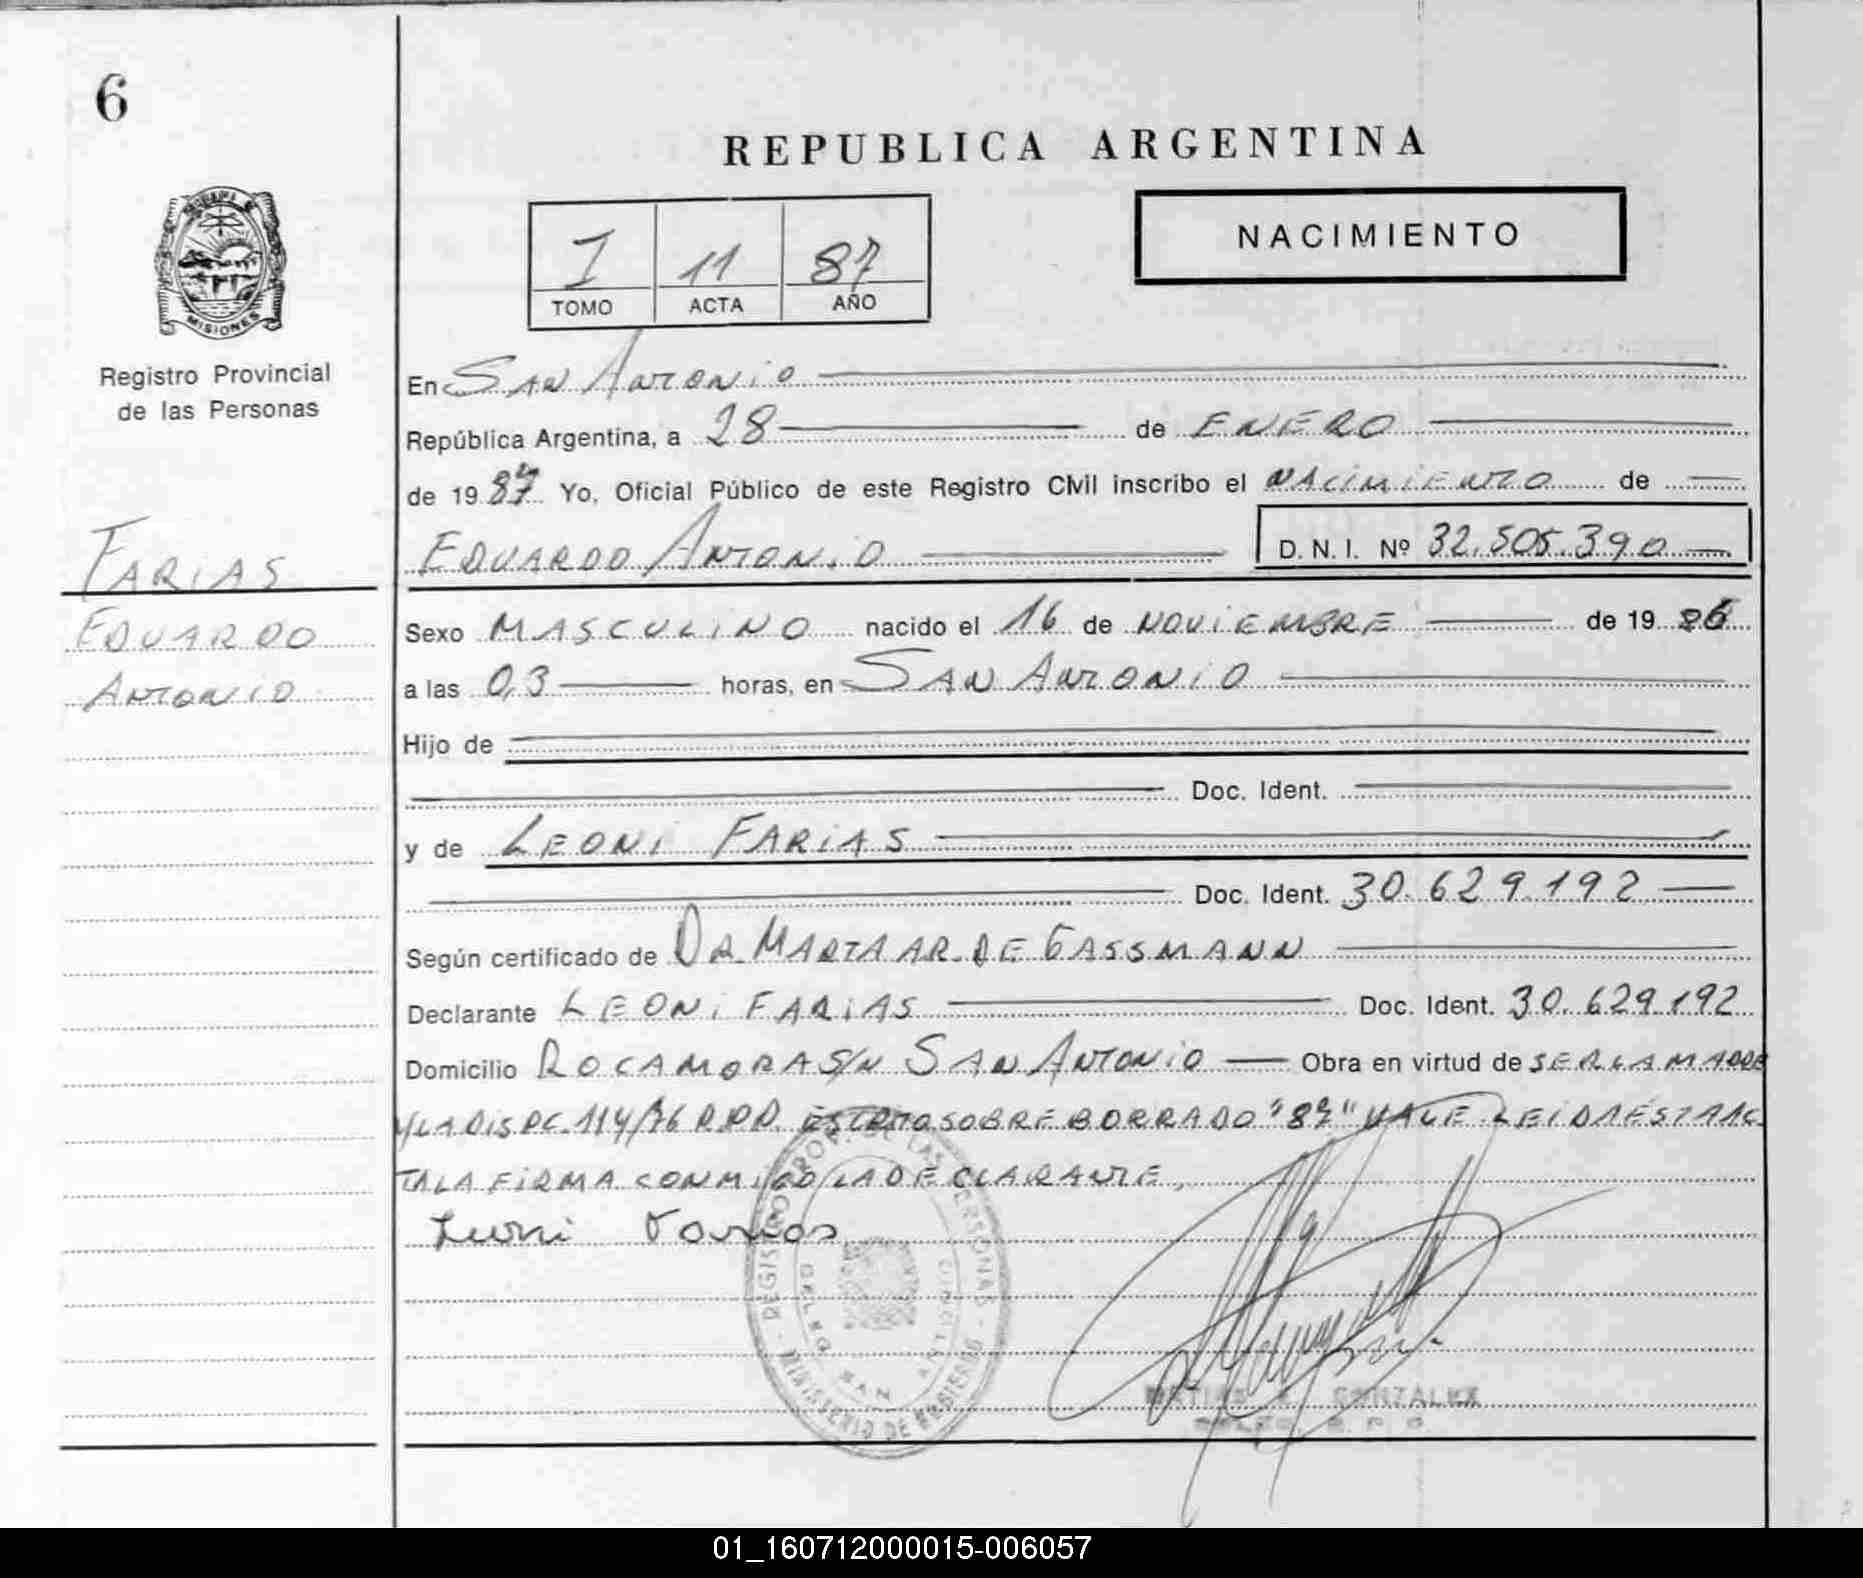 6
REPUBLICA ARGENTINA
NACIMIENTO
I 11 87
TOMO ACTA AÑO
MISIONES
Registro Provincial
de las Personas
En SAN ANTONIO
República Argentina, a 28 de ENERO
de 19 87 Yo, Oficial Público de este Registro Civil inscribo el NACIMIENTO de
FARIAS
EDUARDO ANTONIO D.N.I. Nº 32.505.390
EDUARDO
ANTONIO
Sexo MASCULINO nacido el 16 de NOVIEMBRE de 19 86
a las 03 horas, en SAN ANTONIO
Hijo de
Doc. Ident.
y de LEONI FARIAS
Doc. Ident. 30.629.192
Según certificado de DRA MARTA AR. DE GASSMANN
Declarante LEONI FARIAS Doc. Ident. 30.629.192
Domicilio ROCAMORA S/N SAN ANTONIO Obra en virtud de SER LA MADRE
Y LA DISPC. 114/76 R.P.P. ESCRITO SOBRE BORRADO "87" VALE. LEIDA ESTA AC
TA LA FIRMA CONMIGO LA DECLARANTE,
Leoni Farias
REGISTRO PROV. DE LAS PERSONAS
DELEG. SAN ANTONIO
MINISTERIO DE GOBIERNO
MATIAS GONZALEZ
01_160712000015-006057